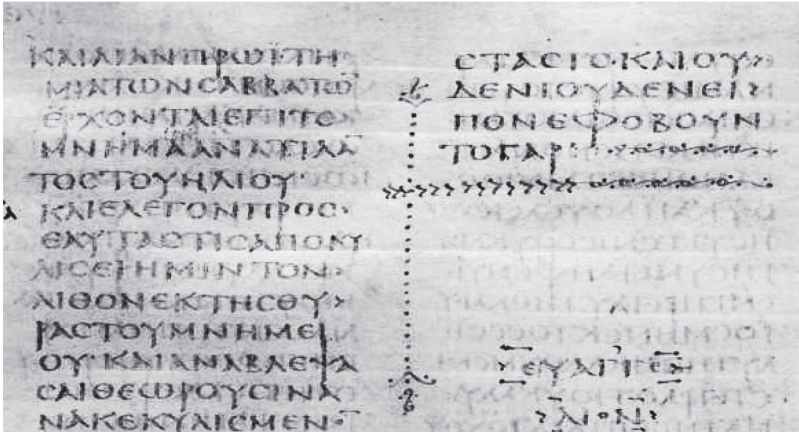 ΚΑΙΛΙΑΝΠΡΩΙΤΗ
ΜΙΑΤΩΝϹΑΒΒΑΤΩ̅
ΕΡΧΟΝΤΑΙΕΠΙΤΟ
ΜΝΗΜΑΑΝΑΤΕΙΛΑ̅
ΤΟϹΤΟΥΗΛΙΟΥ·
ΚΑΙΕΛΕΓΟΝΠΡΟϹ
ΕΑΥΤΑϹΤΙϹΑΠΟΚΥ
ΛΙϹΕΙΗΜΙΝΤΟΝ>
ΛΙΘΟΝΕΚΤΗϹΘΥ>
ΡΑϹΤΟΥΜΝΗΜΕΙ
ΟΥ·ΚΑΙΑΝΑΒΛΕΨΑ
ϹΑΙΘΕΩΡΟΥϹΙΝΑ
ΝΑΚΕΚΥΛΙϹΜΕΝΟ̅
ϹΤΑϹΙϹ·ΚΑΙΟΥ>
ΔΕΝΙΟΥΔΕΝΕΙ>
ΠΟΝΕΦΟΒΟΥΝ
ΤΟΓΑΡ
ΕΥΑΓΓΕ
ΛΙΟΝ